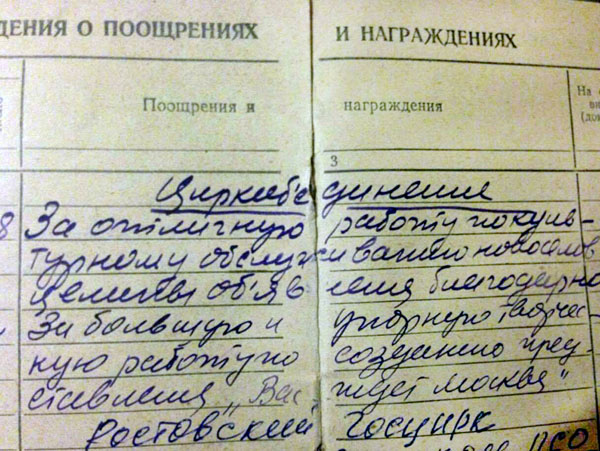 ДЕНИЯ О ПООЩРЕНИЯХ И НАГРАЖДЕНИЯХ
Поощрения и награждения
На
3
Цирк объединение
8 За отличную работу по куль-
турному обслуживанию новоселов
Целины объявлена благодарно
За большую и упорную творчес-
кую работу по созданию пред-
ставления „Вас ждет Москва"
Ростовский Госцирк